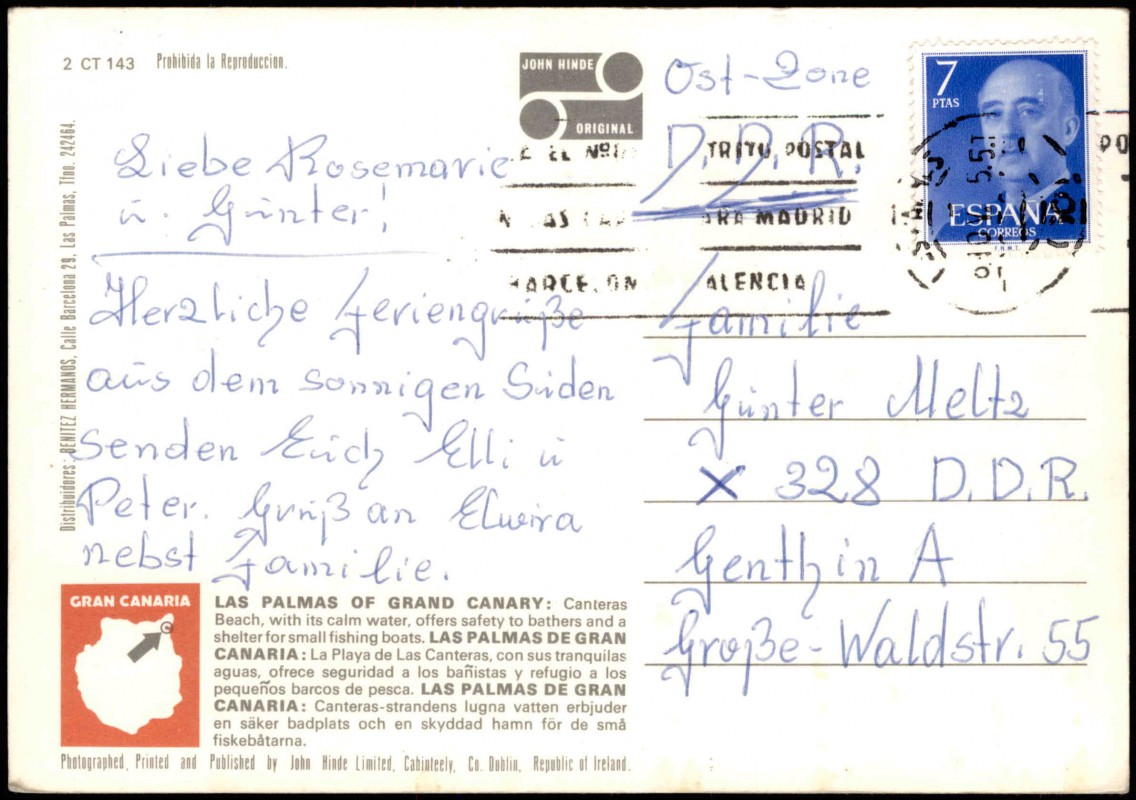 2 CT 143 Prohibida la Reproduccion.
JOHN HINDE
ORIGINAL
Ost-Zone
D.D.R.
7
PTAS
ESPAÑA
CORREOS
F.N.M.T.
EL Nº
TRITO POSTAL
ARA MADRID
BARCELON
ALENCIA
Liebe Rosemarie
u. Günter!
Herzliche Feriengrüße
aus dem sonnigen Süden
senden Euch Elli u
Peter. Gruß an Elwira
nebst Familie.
Familie
Günter Meltz
X 328 D.D.R.
Genthin A
Große-Waldstr. 55
Distribuidores: BENITEZ HERMANOS, Calle Barcelona 29, Las Palmas, Tfno. 242464.
GRAN CANARIA
LAS PALMAS OF GRAND CANARY: Canteras
Beach, with its calm water, offers safety to bathers and a
shelter for small fishing boats. LAS PALMAS DE GRAN
CANARIA: La Playa de Las Canteras, con sus tranquilas
aguas, ofrece seguridad a los bañistas y refugio a los
pequeños barcos de pesca. LAS PALMAS DE GRAN
CANARIA: Canteras-strandens lugna vatten erbjuder
en säker badplats och en skyddad hamn för de små
fiskebåtarna.
Photographed, Printed and Published by John Hinde Limited, Cabinteely, Co. Dublin, Republic of Ireland.